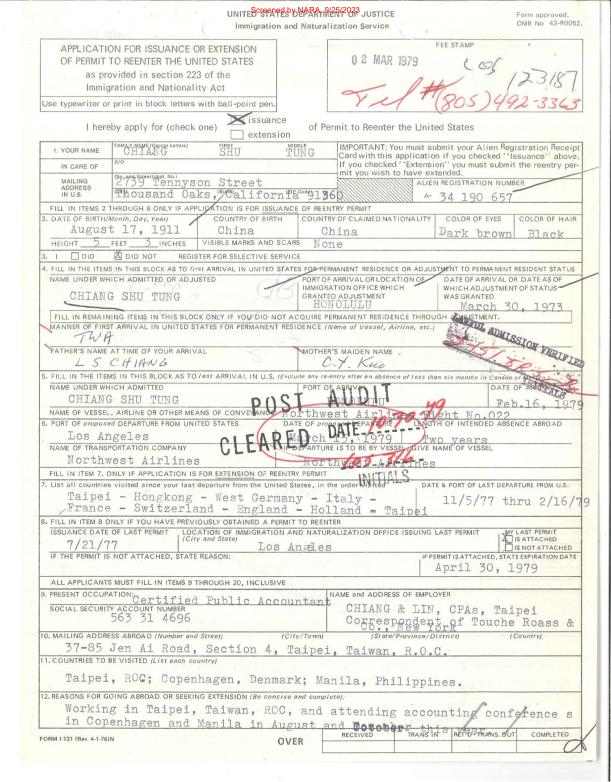 Screened by NARA, 9/25/2023
UNITED STATES DEPARTMENT OF JUSTICE
Immigration and Naturalization Service
Form approved.
OMB No 43-R0052.
APPLICATION FOR ISSUANCE OR EXTENSION
OF PERMIT TO REENTER THE UNITED STATES
as provided in section 223 of the
Immigration and Nationality Act
Use typewriter or print in block letters with ball-point pen.
FEE STAMP
02 MAR 1979
Los 123187
Tel #(805)492-3363
I hereby apply for (check one)
issuance
extension
of Permit to Reenter the United States
1. YOUR NAME
FAMILY NAME (Capital Letters) FIRST MIDDLE
CHIANG SHU TUNG
IMPORTANT: You must submit your Alien Registration Receipt
Card with this application if you checked "Issuance" above.
If you checked "Extension" you must submit the reentry per-
mit you wish to have extended.
IN CARE OF
C/O
MAILING
ADDRESS
IN U.S.
2739 Tennyson Street
Thousand Oaks, California 91360
ALIEN REGISTRATION NUMBER
A- 34 190 657
FILL IN ITEMS 2 THROUGH 6 ONLY IF APPLICATION IS FOR ISSUANCE OF REENTRY PERMIT
2. DATE OF BIRTH (Month, Day, Year) COUNTRY OF BIRTH COUNTRY OF CLAIMED NATIONALITY COLOR OF EYES COLOR OF HAIR
August 17, 1911 China China Dark brown Black
HEIGHT 5 FEET 3 INCHES VISIBLE MARKS AND SCARS None
3. I DID DID NOT REGISTER FOR SELECTIVE SERVICE
4. FILL IN THE ITEMS IN THIS BLOCK AS TO first ARRIVAL IN UNITED STATES FOR PERMANENT RESIDENCE OR ADJUSTMENT TO PERMANENT RESIDENT STATUS
NAME UNDER WHICH ADMITTED OR ADJUSTED
CHIANG SHU TUNG
PORT OF ARRIVAL OR LOCATION OF
IMMIGRATION OFFICE WHICH
GRANTED ADJUSTMENT
HONOLULU
DATE OF ARRIVAL OR DATE AS OF
WHICH ADJUSTMENT OF STATUS
WAS GRANTED
March 30, 1973
FILL IN REMAINING ITEMS IN THIS BLOCK ONLY IF YOU DID NOT ACQUIRE PERMANENT RESIDENCE THROUGH ADJUSTMENT.
MANNER OF FIRST ARRIVAL IN UNITED STATES FOR PERMANENT RESIDENCE (Name of Vessel, Airline, etc.)
TWA
LAWFUL ADMISSION VERIFIED
INITIALS
FATHER'S NAME AT TIME OF YOUR ARRIVAL
L S CHIANG
MOTHER'S MAIDEN NAME
C.Y. Kuo
5. FILL IN THE ITEMS IN THIS BLOCK AS TO last ARRIVAL IN U.S. (Exclude any re-entry after an absence of less than six months in Canada or
NAME UNDER WHICH ADMITTED
CHIANG SHU TUNG
PORT OF ARRIVAL
DATE OF
Feb.16, 1979
POST AUDIT
CLEARED DATE
INITIALS
NAME OF VESSEL, AIRLINE OR OTHER MEANS OF CONVEYANCE Northwest Airlines Flight No.022
6. PORT OF proposed DEPARTURE FROM UNITED STATES
Los Angeles
DATE OF proposed DEPARTURE
March 15, 1979
LENGTH OF INTENDED ABSENCE
Two years
NAME OF TRANSPORTATION COMPANY
Northwest Airlines
IF DEPARTURE IS TO BE BY VESSEL, GIVE NAME OF VESSEL
Northwest Airlines
FILL IN ITEM 7, ONLY IF APPLICATION IS FOR EXTENSION OF REENTRY PERMIT
7. List all countries visited since your last departure from the United States, in the order visited
Taipei - Hongkong - West Germany - Italy -
France - Switzerland - England - Holland - Taipei
DATE & PORT OF LAST DEPARTURE FROM U.S.
11/5/77 thru 2/16/79
8. FILL IN ITEM 8 ONLY IF YOU HAVE PREVIOUSLY OBTAINED A PERMIT TO REENTER
ISSUANCE DATE OF LAST PERMIT
7/21/77
LOCATION OF IMMIGRATION AND NATURALIZATION OFFICE ISSUING LAST PERMIT
(City and State)
Los Angeles
MY LAST PERMIT
X IS ATTACHED
IS NOT ATTACHED
IF THE PERMIT IS NOT ATTACHED, STATE REASON:
IF PERMIT IS ATTACHED, STATE EXPIRATION DATE
April 30, 1979
ALL APPLICANTS MUST FILL IN ITEMS 9 THROUGH 20, INCLUSIVE
9. PRESENT OCCUPATION: Certified Public Accountant
SOCIAL SECURITY ACCOUNT NUMBER
563 31 4696
NAME AND ADDRESS OF EMPLOYER
CHIANG & LIN, CPAs, Taipei
Correspondent of Touche Roass &
Co., New York
10. MAILING ADDRESS ABROAD (Number and Street) (City/Town) (State/Province/District) (Country)
37-85 Jen Ai Road, Section 4, Taipei, Taiwan, R.O.C.
11. COUNTRIES TO BE VISITED (List each country)
Taipei, ROC; Copenhagen, Denmark; Manila, Philippines.
12. REASONS FOR GOING ABROAD OR SEEKING EXTENSION (Be concise and complete):
Working in Taipei, Taiwan, ROC, and attending accounting conference s
in Copenhagen and Manila in August and October this year.
FORM I-131 (Rev. 4-1-76)N
OVER
RECEIVED
TRANS IN
RET'D-TRANS. OUT
COMPLETED